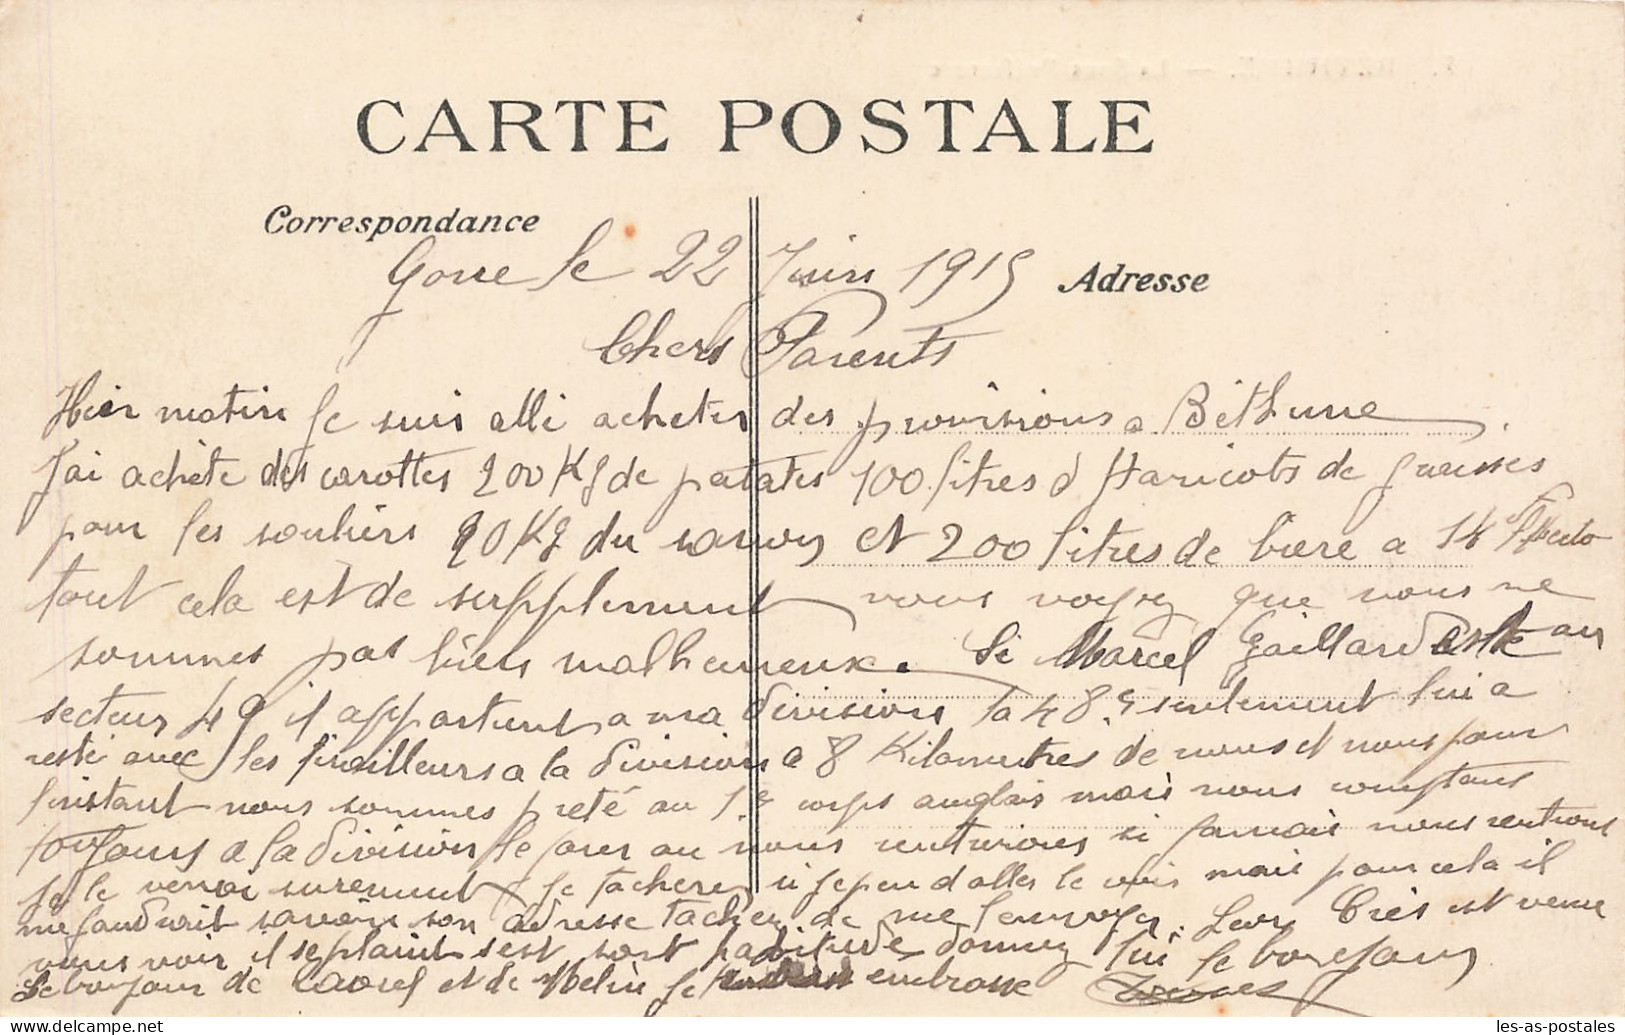 CARTE POSTALE
Correspondance
Adresse
Gorre le 22 Juin 1915
Chers Parents
Hier matin je suis allé acheter des provisions a Béthune.
J'ai achète des carottes 200 Kg de patates 100 litres d Haricots de graisses
pour les souliers 20 Kg du savon et 200 litres de biere a 14 f l'hecto
tout cela est de supplement vous voyez que nous ne
sommes pas bien malheureux. Si Marcel Gaillard est au
secteur 49 il appartient a ma division la 48e seulement lui a
resté avec les tirailleurs a la division a 8 Kilometres de nous et nous pour
l'instant nous sommes preté au 1e corps anglais mais nous comptons
toujours a la division le jour ou nous rentrerions si jamais nous rentrions
je le verrai surement je tacherez si je peu d aller le voir mais pour cela il
me faudrait savoir son adresse tachez de me l'envoyer. Leon est venu
vous voir il se plaint sest sont habitude donnez lui le bonjour
Le bonjour de et de je embrasse
les-as-postales